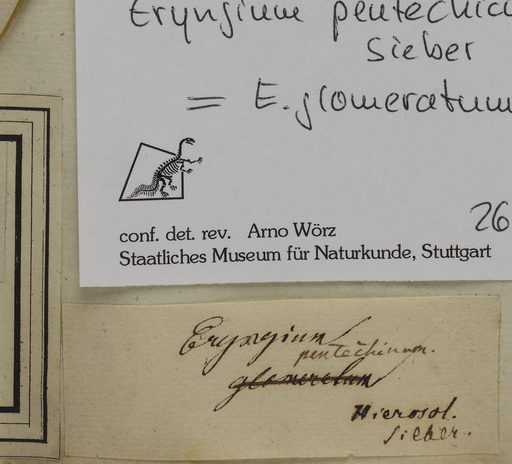 Eryngium pentechin
Sieber
= E. glomeratum
26
conf. det. rev. Arno Wörz
Staatliches Museum für Naturkunde, Stuttgart
Eryngium
pentechinum.
glomeratum
Hierosol.
Sieber.